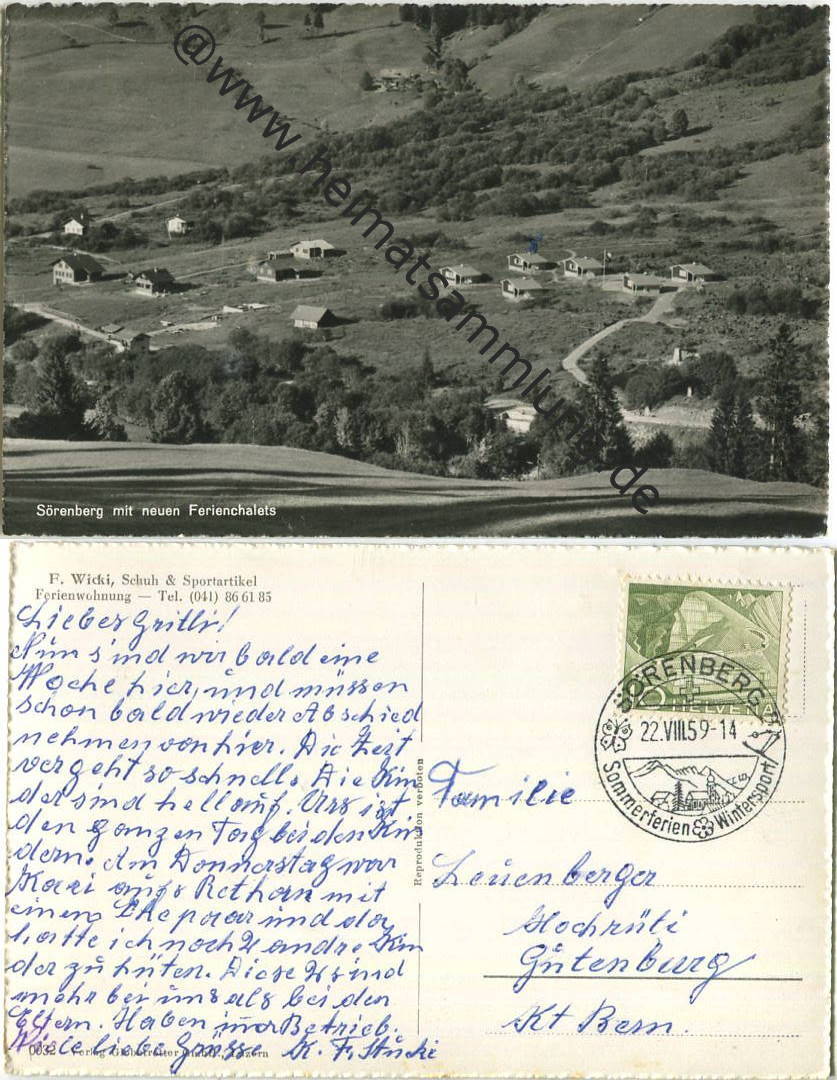 @www.heimatsammlung.de
Sörenberg mit neuen Ferienchalets
F. Wicki, Schuh & Sportartikel
Ferienwohnung — Tel. (041) 86 61 85
Liebes Gritli!
Nun sind wir bald eine
Woche hier, und müssen
schon bald wieder Abschied
nehmen von hier. Die Zeit
vergeht so schnell. Die Kin
der sind hellauf. Urs ist
den ganzen Tag bei den Kin
dern. Am Donnerstag war
aufs Rothorn mit
einem Ehepaar und da
hatte ich noch 2 andre Kin
der zu hüten. Diese 2 sind
mehr bei uns als bei den
Eltern. Haben Betrieb.
Viele liebe Grüsse K. F. Stucki
0032 Verlag Globetrotter GmbH, Luzern
Reproduktion verboten
HELVETIA
SÖRENBERG
22.VIII.59-14
Sommerferien Wintersport
Familie
Leuenberger
Hochrüti
Gutenburg
Kt Bern.